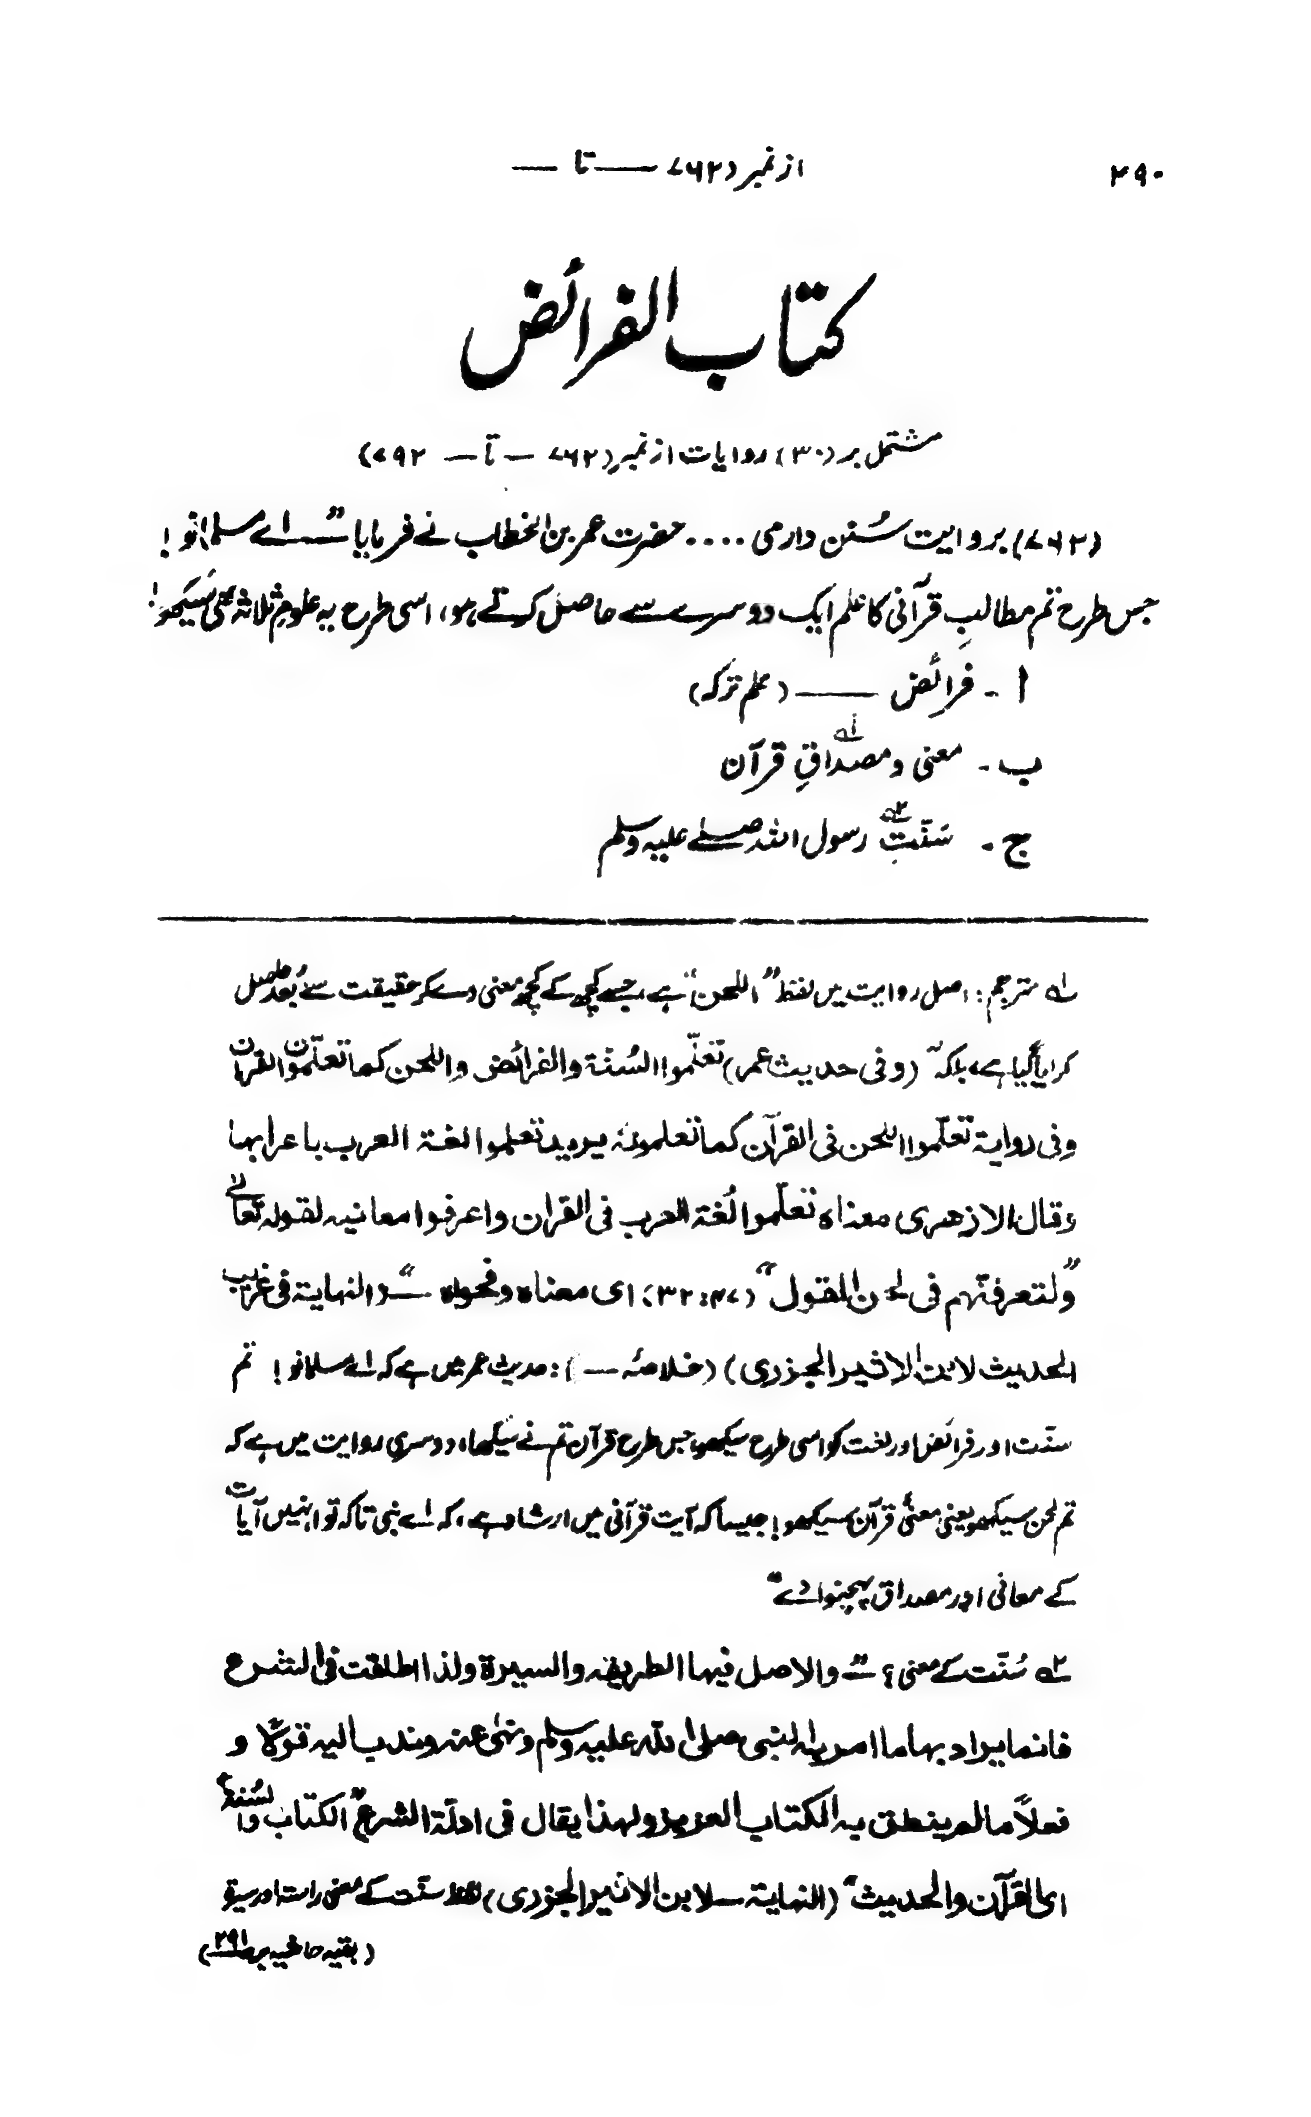 ۲۹۰
از نمبر (۷۶۲ — تا —
کتاب الفرائض
مشتمل بر (۳۰) روایات از نمبر (۷۶۲ — تا — ۷۹۲)
(۷۶۲) بروایت سُنن دارمی .... حضرت عمر بن الخطاب نے فرمایا ”اے مسلمانو !
جس طرح تم مطالبِ قرآنی کا علم ایک دوسرے سے حاصل کرتے ہو، اسی طرح یہ علومِ ثلاثہ بھی سیکھو!
ا - فرائض —— (علم ترکہ)
ب - معنی و مصداقِ ۱؎ قرآن
ج - سنّتِ ۲؎ رسول اللہ صلے علیہ وسلم
۱؎ مترجم: اصل روایت میں لفظ ”اللحن“ ہے، جسے کچھ کے کچھ معنی دے کر حقیقت سے بُعد حاصل
کرایا گیا ہے، بلکہ ” (وفی حدیث عمر) تعلّموا السُنّة والفرائض واللحن کما تعلّمون القران
وفی روایة تعلّموا اللحن فی القرآن کما تعلمونہ یرید تعلموا لغة العرب باعرابها
وقال الازهری معناہ تعلّموا لُغة العرب فی القران واعرفوا معانیہ لقولہ تعالٰے
”ولتعرفنّهم فی لحن القول“ (۳۲:۴۷) ای معناہ وفحواہ — “ (النهایة فی غریب
الحدیث لابن الاثیر الجزری) (خلاصہ —): حدیث عمر میں ہے کہ اے مسلمانو ! تم
سنّت اور فرائض اور لغت کو اسی طرح سیکھو، جس طرح قرآن تم نے سیکھا، دوسری روایت میں ہے کہ
تم لحن سیکھو یعنی معنیٰ قرآن سیکھو! جیسا کہ آیت قرآنی میں ارشاد ہے، کہ اے نبی تاکہ تو انہیں آیات
کے معانی اور مصداق پہچنوا دے“
۲؎ سُنّت کے معنی ؟ ”والاصل فیها الطریقہ والسیرة ولذا اطلقت فی الشرع
فانما یراد بها ما امر بہ النبی صلی اللہ علیہ وسلم ونهیٰ عنہ وندب الیہ قولًا و
فعلاً مما لم ینطق بہ الکتاب العزیز ولهذا یقال فی ادلّة الشرع ”الکتاب والسُنة“
ای القرآن والحدیث“ (النهایة — لابن الاثیر الجزری) لفظ سنّت کے معنی راستہ اور سیرة
(بقیہ حاشیہ بر صـ ۲۹۱)